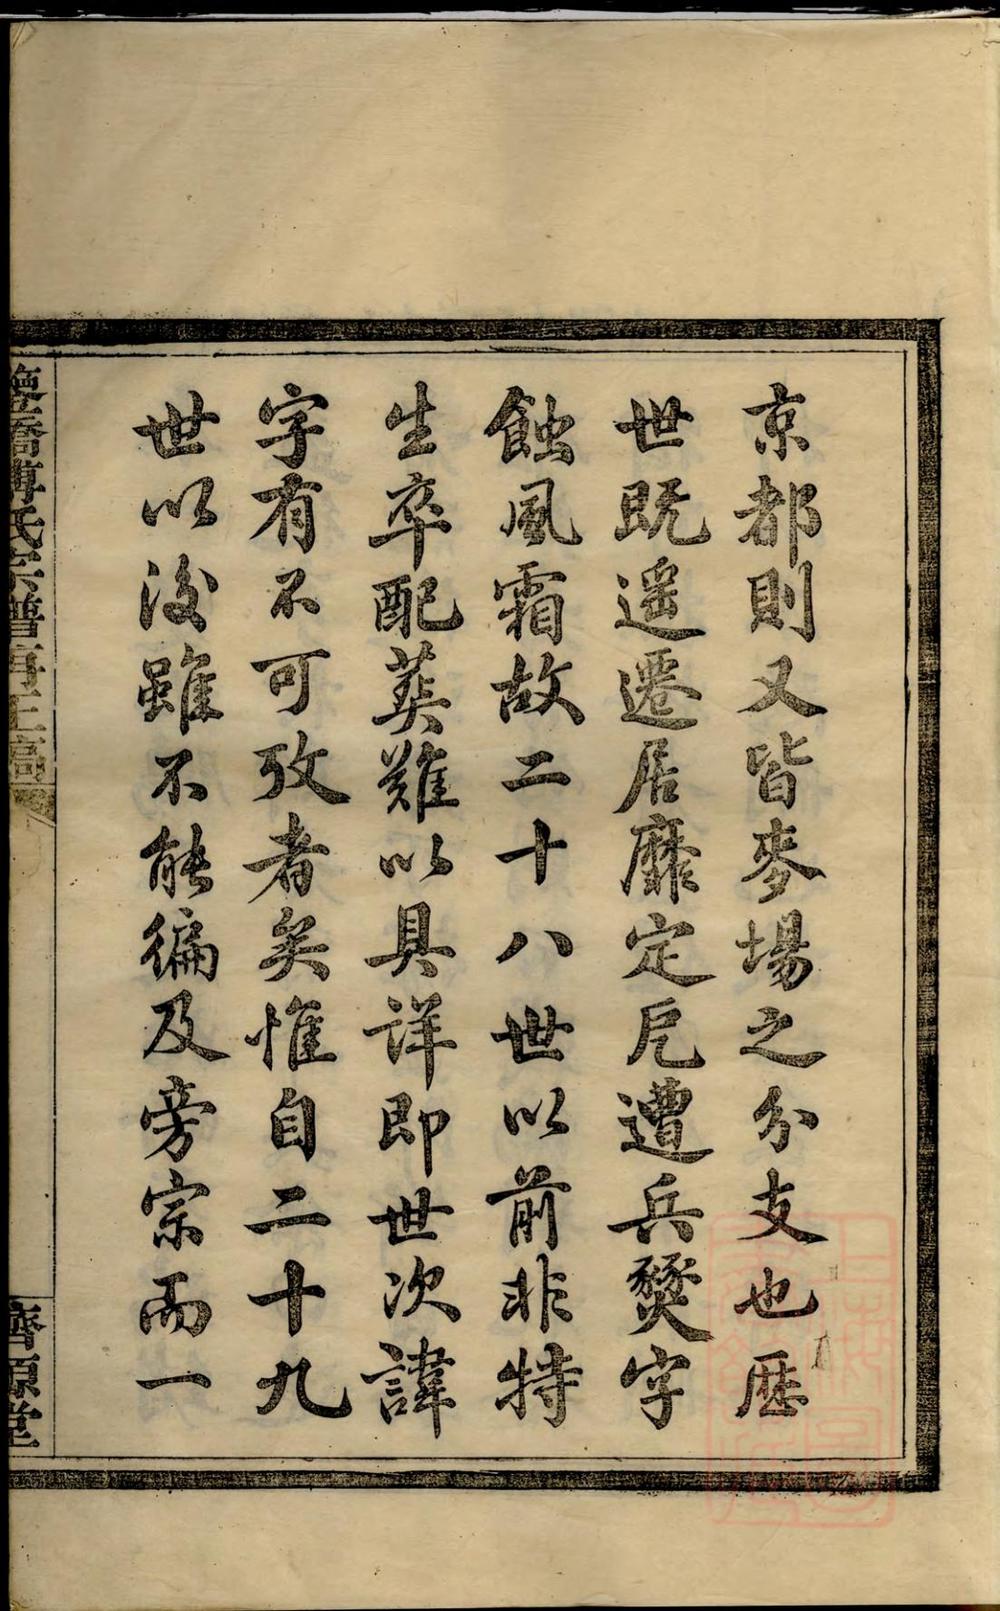 京都則又皆麥場之分支也歷
世既遥遷居靡定戹遭兵燹字
蝕風霜故二十八世以前非特
生卒配葬難以具詳即世次諱
字有不可攷者矣惟自二十九
世以後雖不能徧及旁宗而一
氏宗譜
濟源堂